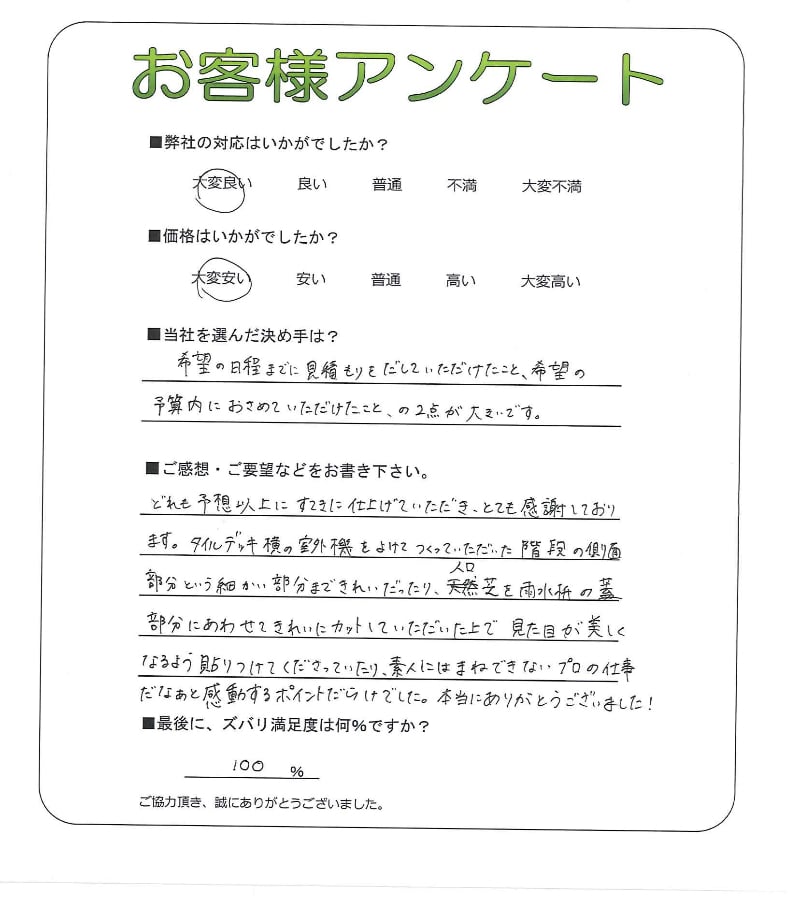 お客様アンケート
■弊社の対応はいかがでしたか？
大変良い 良い 普通 不満 大変不満
■価格はいかがでしたか？
大変安い 安い 普通 高い 大変高い
■当社を選んだ決め手は？
希望の日程までに見積もりをだしていただけたこと、希望の
予算内におさめていただけたこと、の2点が大きいです。
■ご感想・ご要望などをお書き下さい。
どれも予想以上にすてきに仕上げていただき、とても感謝しており
ます。タイルデッキ横の室外機をよけてつくっていただいた階段の側面
人口
部分という細かい部分まできれいだったり、天然芝を雨水枡の蓋
部分にあわせてきれいにカットしていただいた上で見た目が美しく
なるよう貼りつけてくださっていたり、素人にはまねできないプロの仕事
だなぁと感動するポイントだらけでした。本当にありがとうございました！
■最後に、ズバリ満足度は何％ですか？
100 ％
ご協力頂き、誠にありがとうございました。